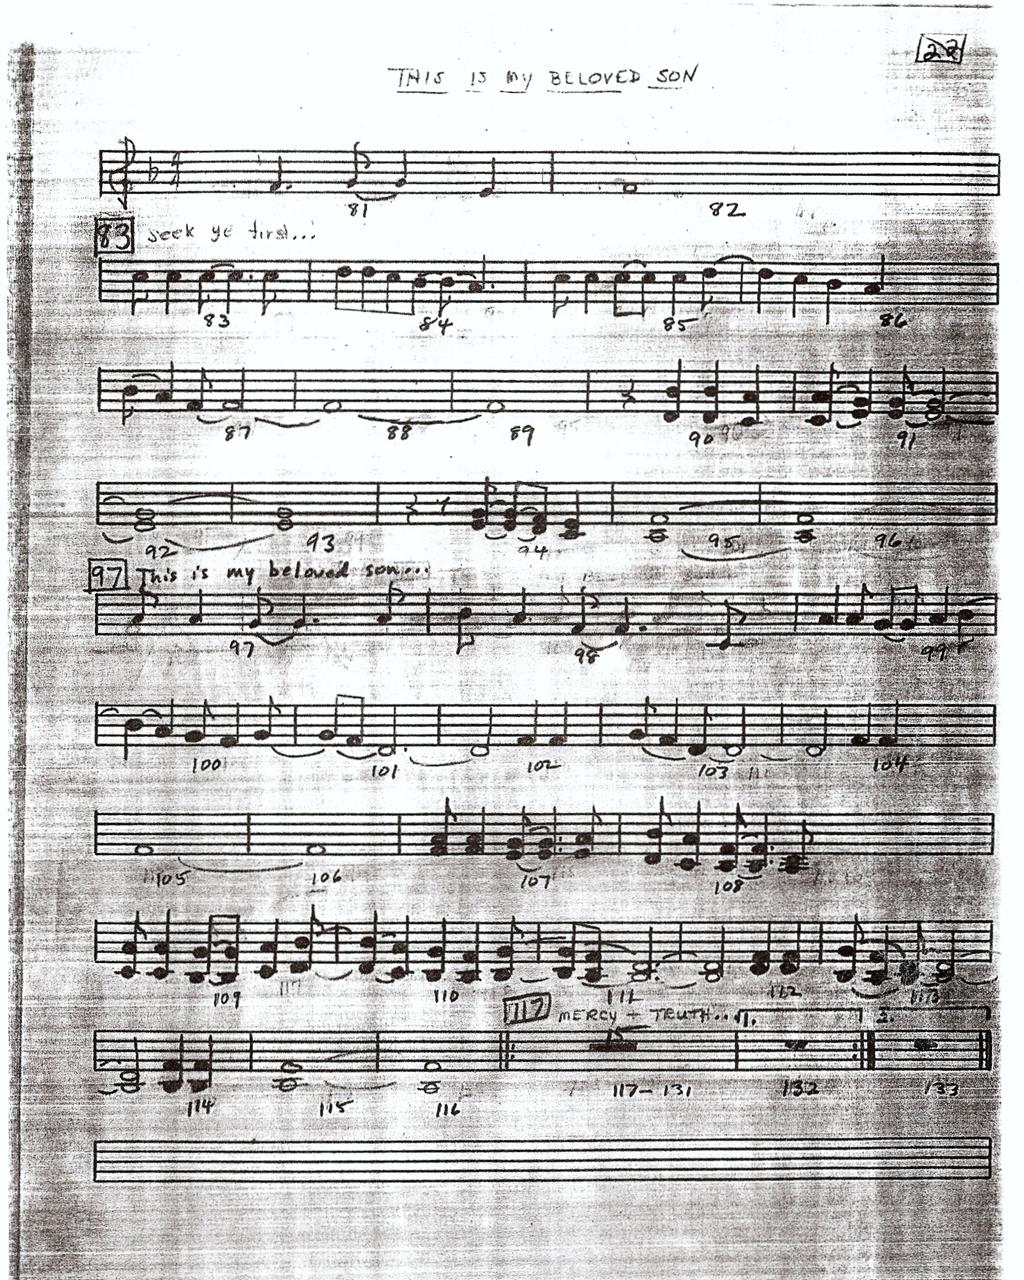 22
THIS IS MY BELOVED SON
81 82
83 Seek ye first...
83 84 85 86
87 88 89 90 91
92 93 94 95 96
97 This is my beloved son...
97 98 99
100 101 102 103 104
105 106 107 108
109 110 111 112 113
117 MERCY + TRUTH... 1. 2.
114 115 116 117-131 132 133